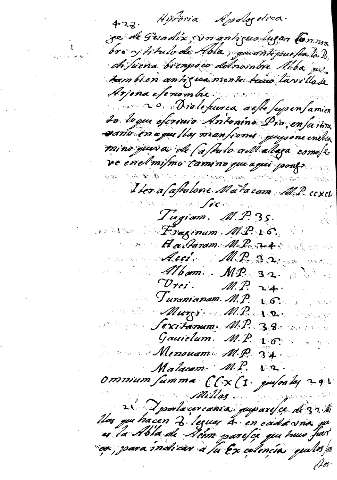 428. Historia Apologetica
ga de Guadix, con antiguo lugar con nom
bre, y titulo de Abla, que antepuesta la D.
del nombre Alba, que
tambien antiguamente tuvo la villa de
Arjona ese nombre.
20. Diole fuerça a este su pensamien
to lo que escrivio Antonino Pio, en su itine
rario en aquellas mansiones que pone en el ca
mino que va de Castulo a Malaga como se
ve en el mismo camino que aqui pongo.
Iter a Castulone Malacam. M.P. ccxci
sic
Tugiam. M.P. 35.
Fraginum. M.P. 16.
Hactaram. M.P. 24.
Acci. M.P. 32.
Albam. M.P. 32.
Urci. M.P. 24.
Turanianam. M.P. 16.
Murgi. M.P. 12.
Sexitanum. M.P. 38.
Caviclum. M.P. 16.
Menovam. M.P. 34.
Malacam. M.P. 12.
Omnium summa CCXCI. que son las 291
Millas
21. Y por la cercania que parece de 32 Mi
llas que hacen 8 leguas 4 en cada una que
es la Abla de Acci parece que tuvo fuer
ça, para indicar a Su Excelencia que los